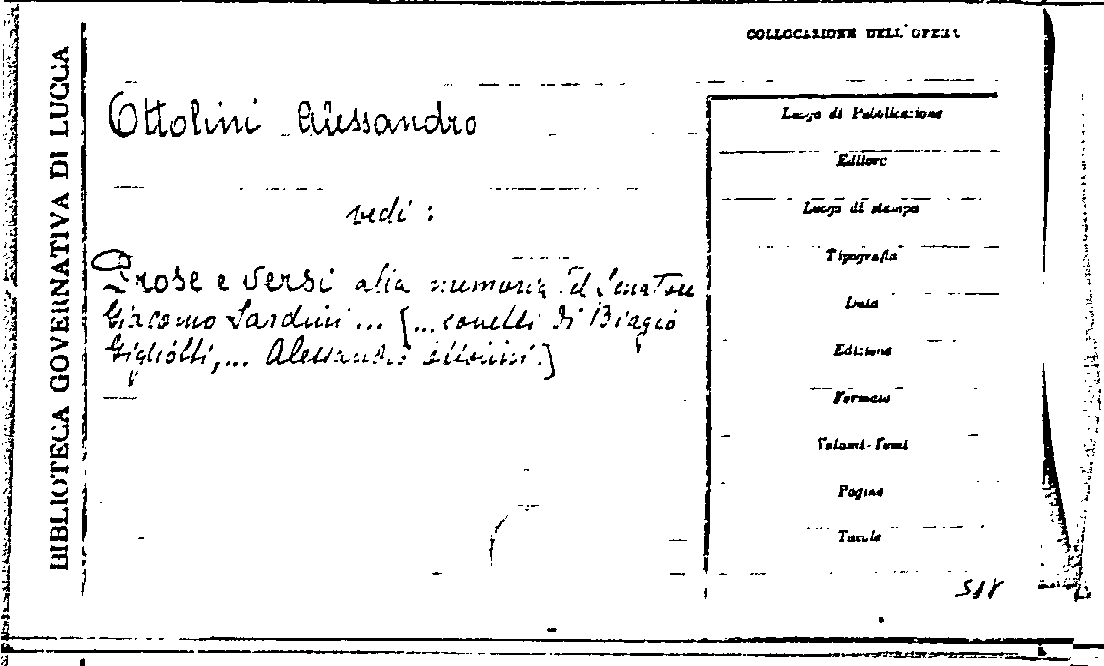 BIBLIOTECA GOVERNATIVA DI LUCCA
COLLOCAZIONE DELL'OPERA
Ottolini Alessandro
vedi:
Prose e versi alla memoria del Senatore
Giacomo Sardini ... [... di Biagio
Gigliotti, ... Alessandro Ottolini.]
Luogo di Pubblicazione
Editore
Luogo di stampa
Tipografia
Data
Edizione
Formato
Volumi-Tomi
Pagine
Tavole